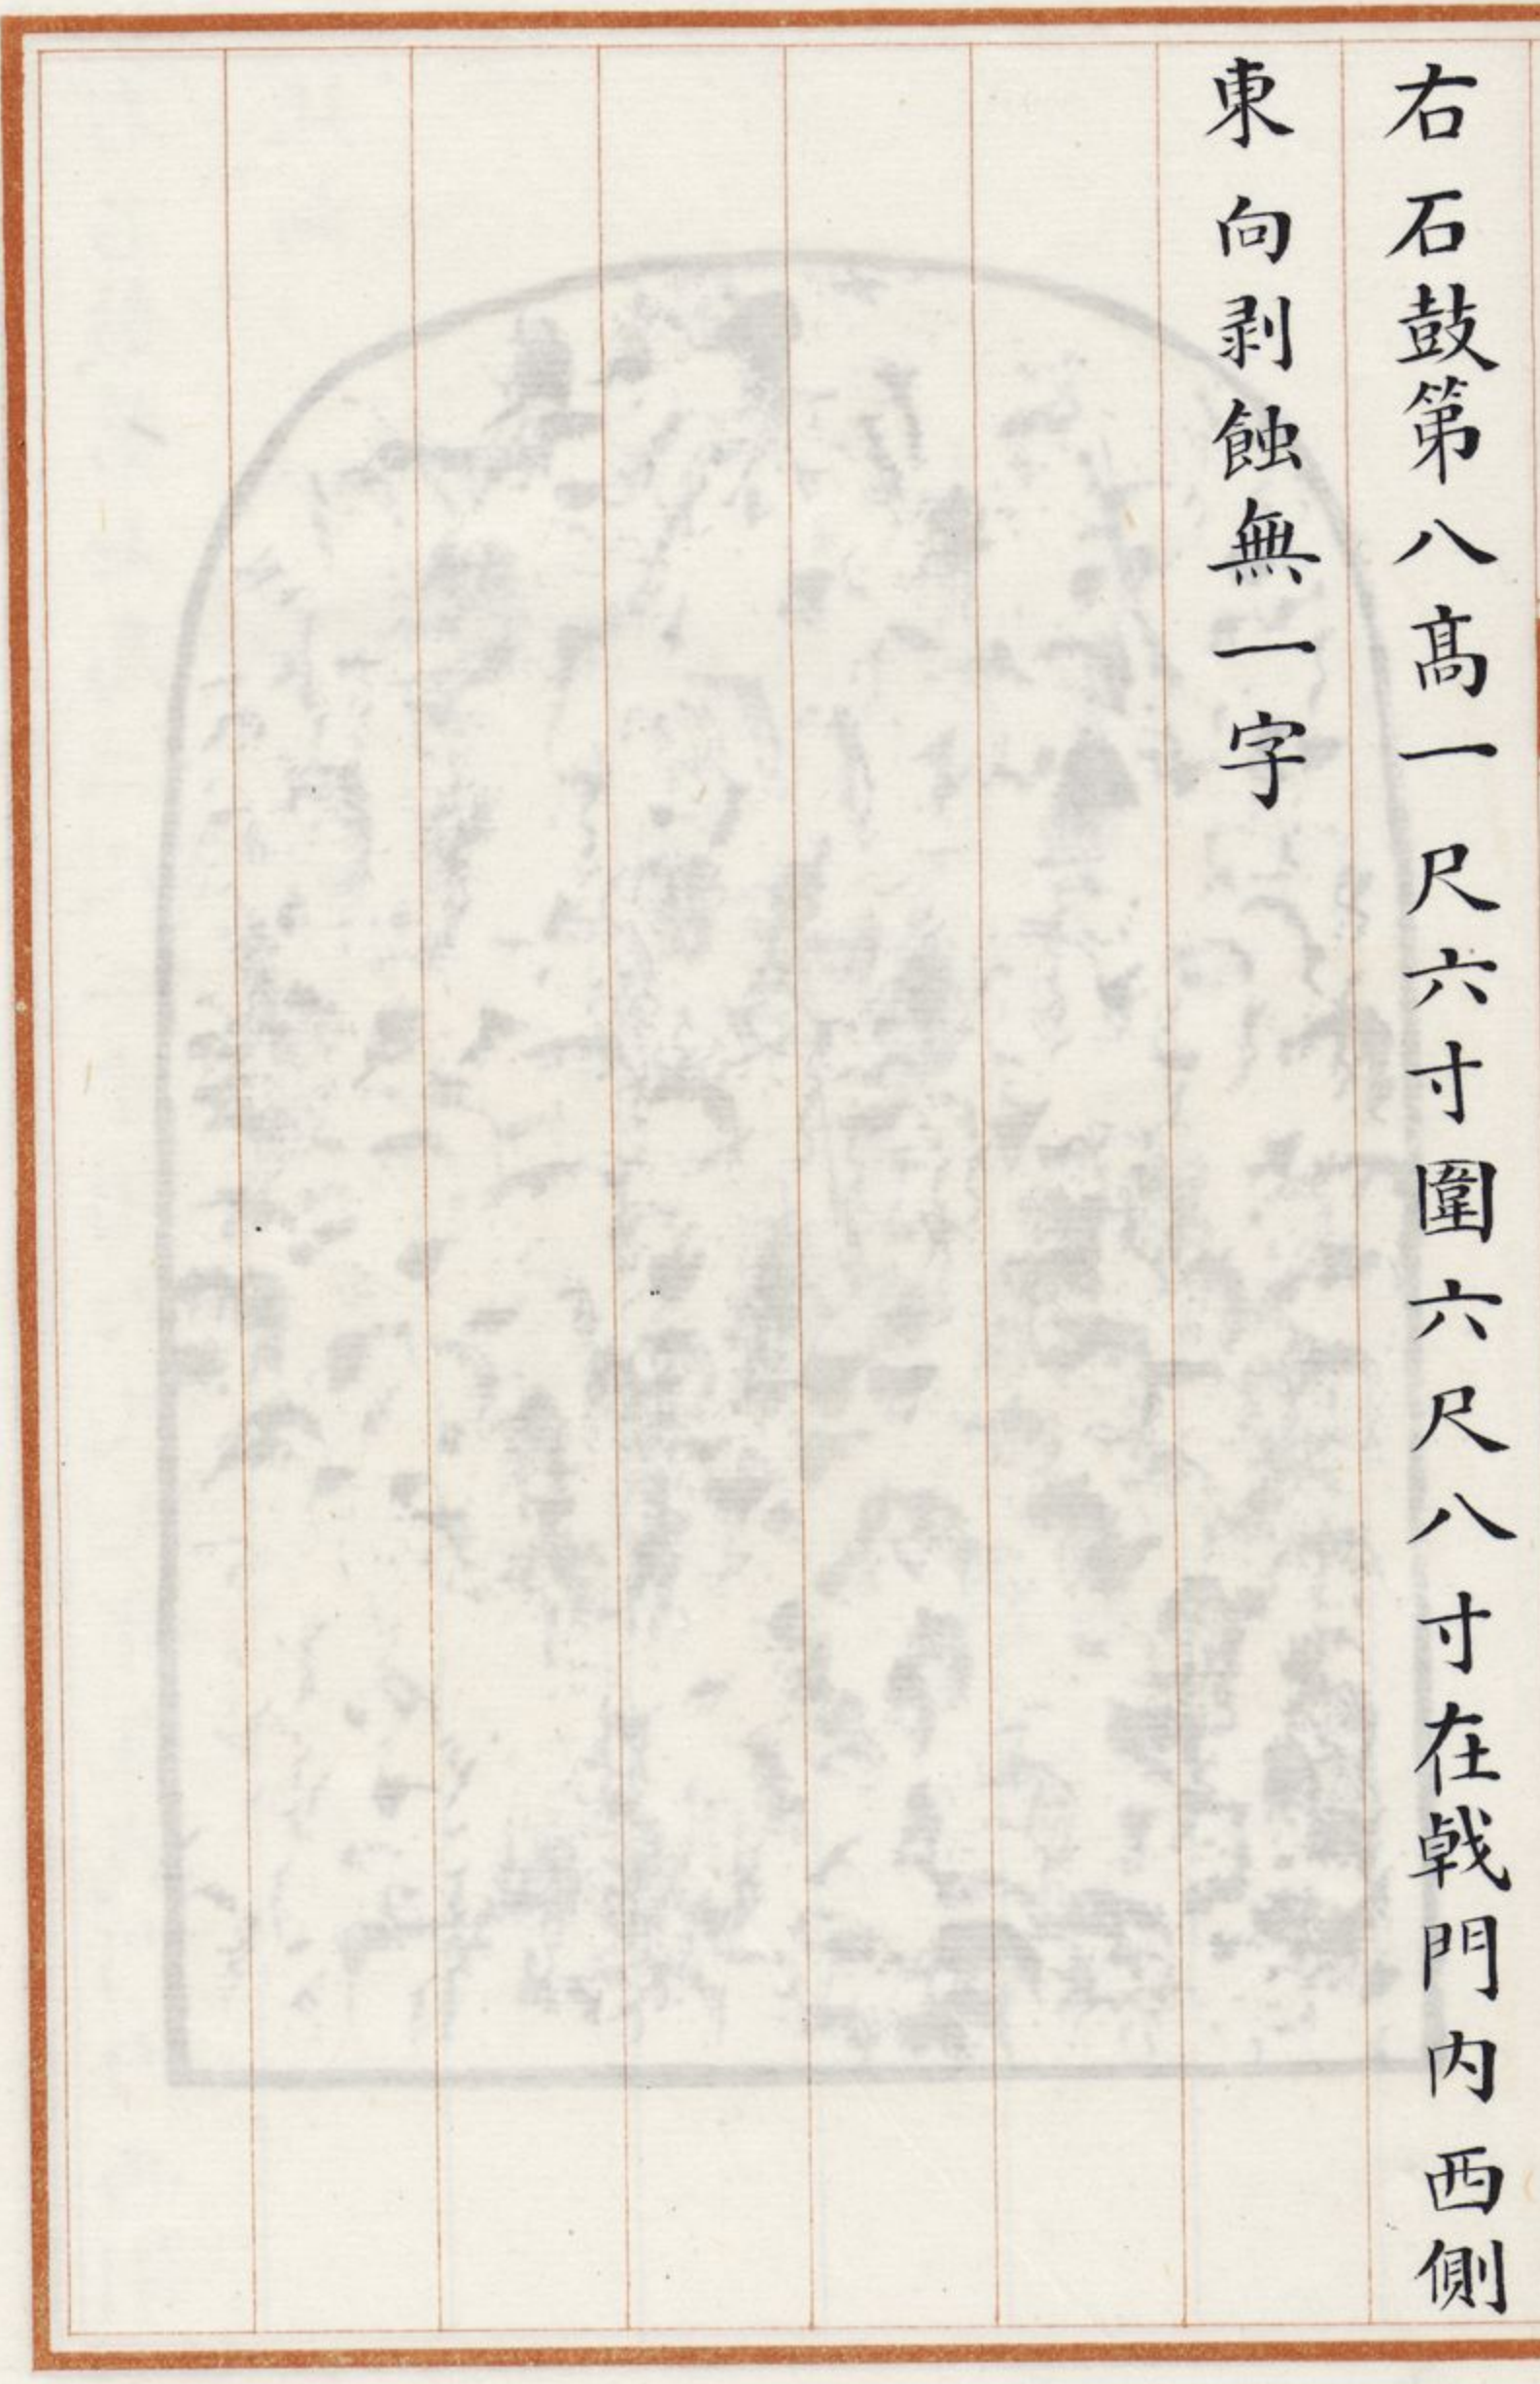 右石鼓第八高一尺六寸圍六尺八寸在戟門内西側
東向剥蝕無一字